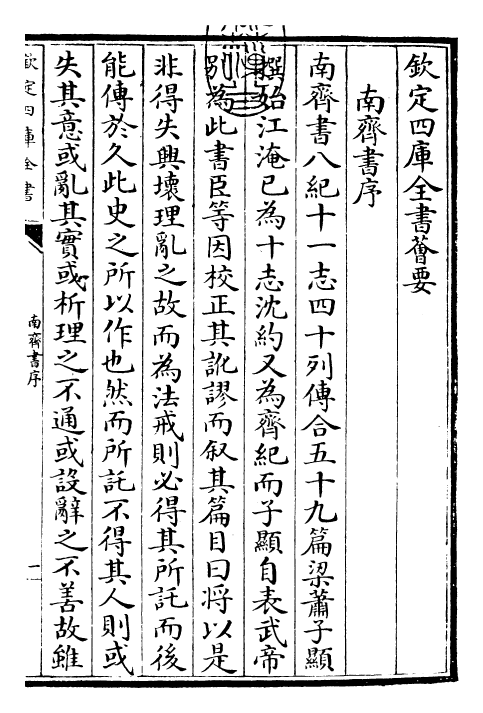 欽定四庫全書薈要
南齊書序
南齊書八紀十一志四十列傳合五十九篇梁蕭子顯
撰始江淹已為十志沈約又為齊紀而子顯自表武帝
别為此書臣等因校正其訛謬而叙其篇目曰將以是
非得失興壞理亂之故而為法戒則必得其所託而後
能傳於久此史之所以作也然而所託不得其人則或
失其意或亂其實或析理之不通或設辭之不善故雖
欽定四庫全書
南齊書序
一